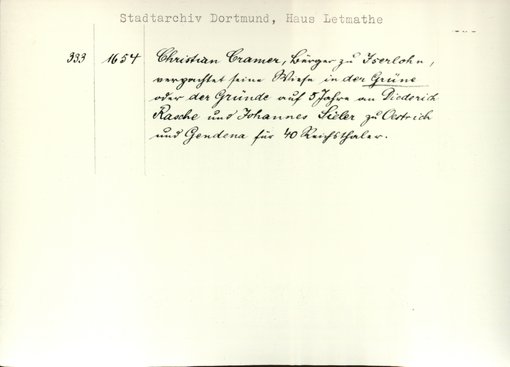 Stadtarchiv Dortmund, Haus Letmathe
333 1654 Christian Cramer, Bürger zu Iserlohn,
verpachtet seine Wiese in der Grüne
oder der Gründe auf 5 Jahre an Diederich
Rasche und Johannes Sieler zu Oestrich
und Gendena für 40 Reichsthaler.